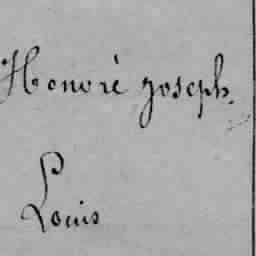 Honoré Joseph
Louis